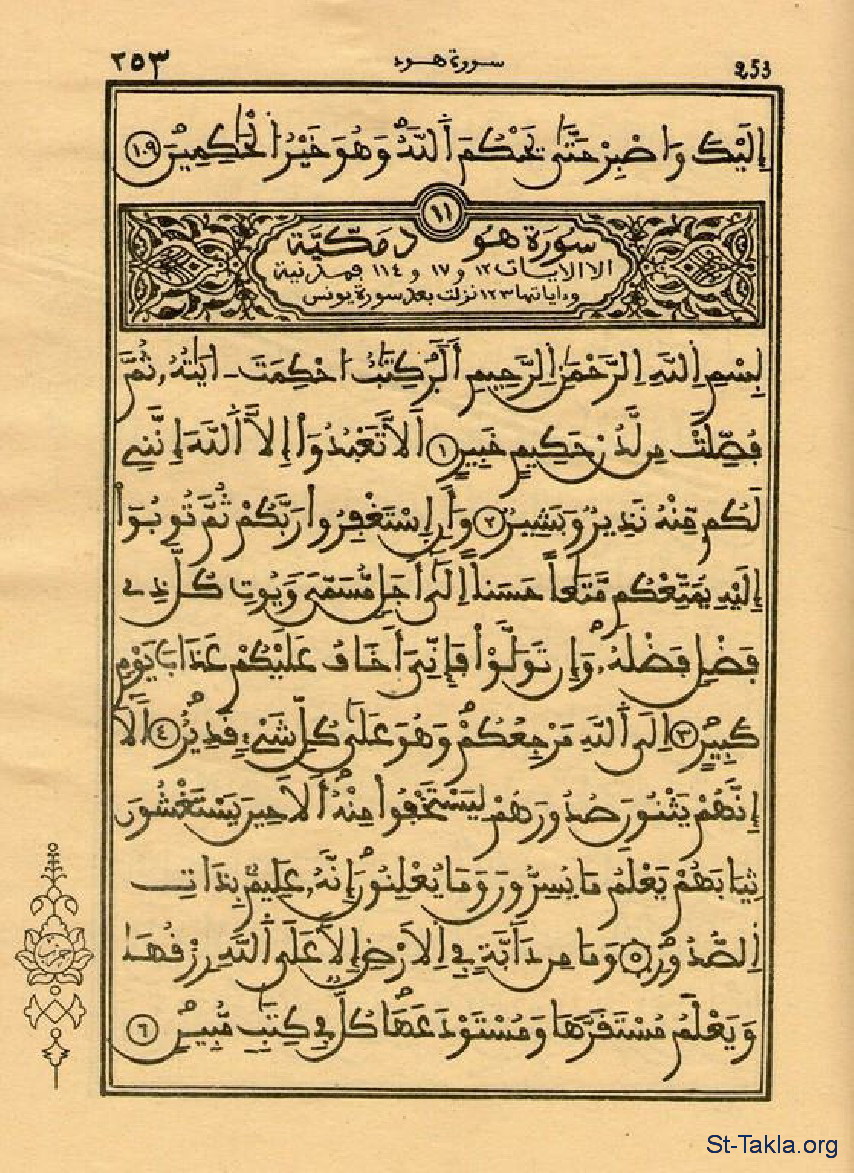 ٢٥٣ سورة هود 253
إِلَيْكَ وَاصْبِرْ حَتَّىٰ يَحْكُمَ اَللَّهُ وَهُوَ خَيْرُ اُلْحَٰكِمِينَ ١٠٩
١١
سُورَةُ هُودٍ مَكِّيَّة
الا الايات ١٢ و ١٧ و ١١٤ فمدنية
وءاياتها ١٢٣ نزلت بعد سورة يونس
بِسْمِ اِللَّهِ اِلرَّحْمَٰنِ اِلرَّحِيمِ أَلَٓر كِتَٰبٌ ا۟حْكِمَتَ ـ ايَٰتُهُۥ ثُمَّ
فُصِّلَتْ مِن لَّدُنْ حَكِيمٍ خَبِيرٍ ١ اَلَّا تَعْبُدُوٓاْ إِلَّا اَللَّهَ إِنَّنِے
لَكُم مِّنْهُ نَذِيرٌ وَبَشِيرٌ ٢ وَأَنِ اِسْتَغْفِرُواْ رَبَّكُمْ ثُمَّ تُوبُوٓاْ
إِلَيْهِ يُمَتِّعْكُم مَّتَٰعاً حَسَناً إِلَىٰٓ أَجَلٖ مُّسَمّىٗ وَيُوتِ كُلَّ ذِے
فَضْلٖ فَضْلَهُۥ وَإِن تَوَلَّوْاْ فَإِنِّيَ أَخَافُ عَلَيْكُمْ عَذَابَ يَوْمٖ
كَبِيرٍ ٣ اِلَى اَللَّهِ مَرْجِعُكُمْ وَهُوَ عَلَىٰ كُلِّ شَےْءٖ قَدِيرٌ ٤ اَلَآ
إِنَّهُمْ يَثْنُونَ صُدُورَهُمْ لِيَسْتَخْفُواْ مِنْهُ أَلَا حِينَ يَسْتَغْشُونَ
ثِيَابَهُمْ يَعْلَمُ مَا يُسِرُّونَ وَمَا يُعْلِنُونَ إِنَّهُۥ عَلِيمٌ بِذَاتِ
اِلصُّدُورِ ٥ وَمَا مِن دَآبَّةٖ فِے اِلَارْضِ إِلَّا عَلَى اَللَّهِ رِزْقُهَا
وَيَعْلَمُ مُسْتَقَرَّهَا وَمُسْتَوْدَعَهَا كُلٌّ فِے كِتَٰبٖ مُّبِينٖ ٦
St-Takla.org